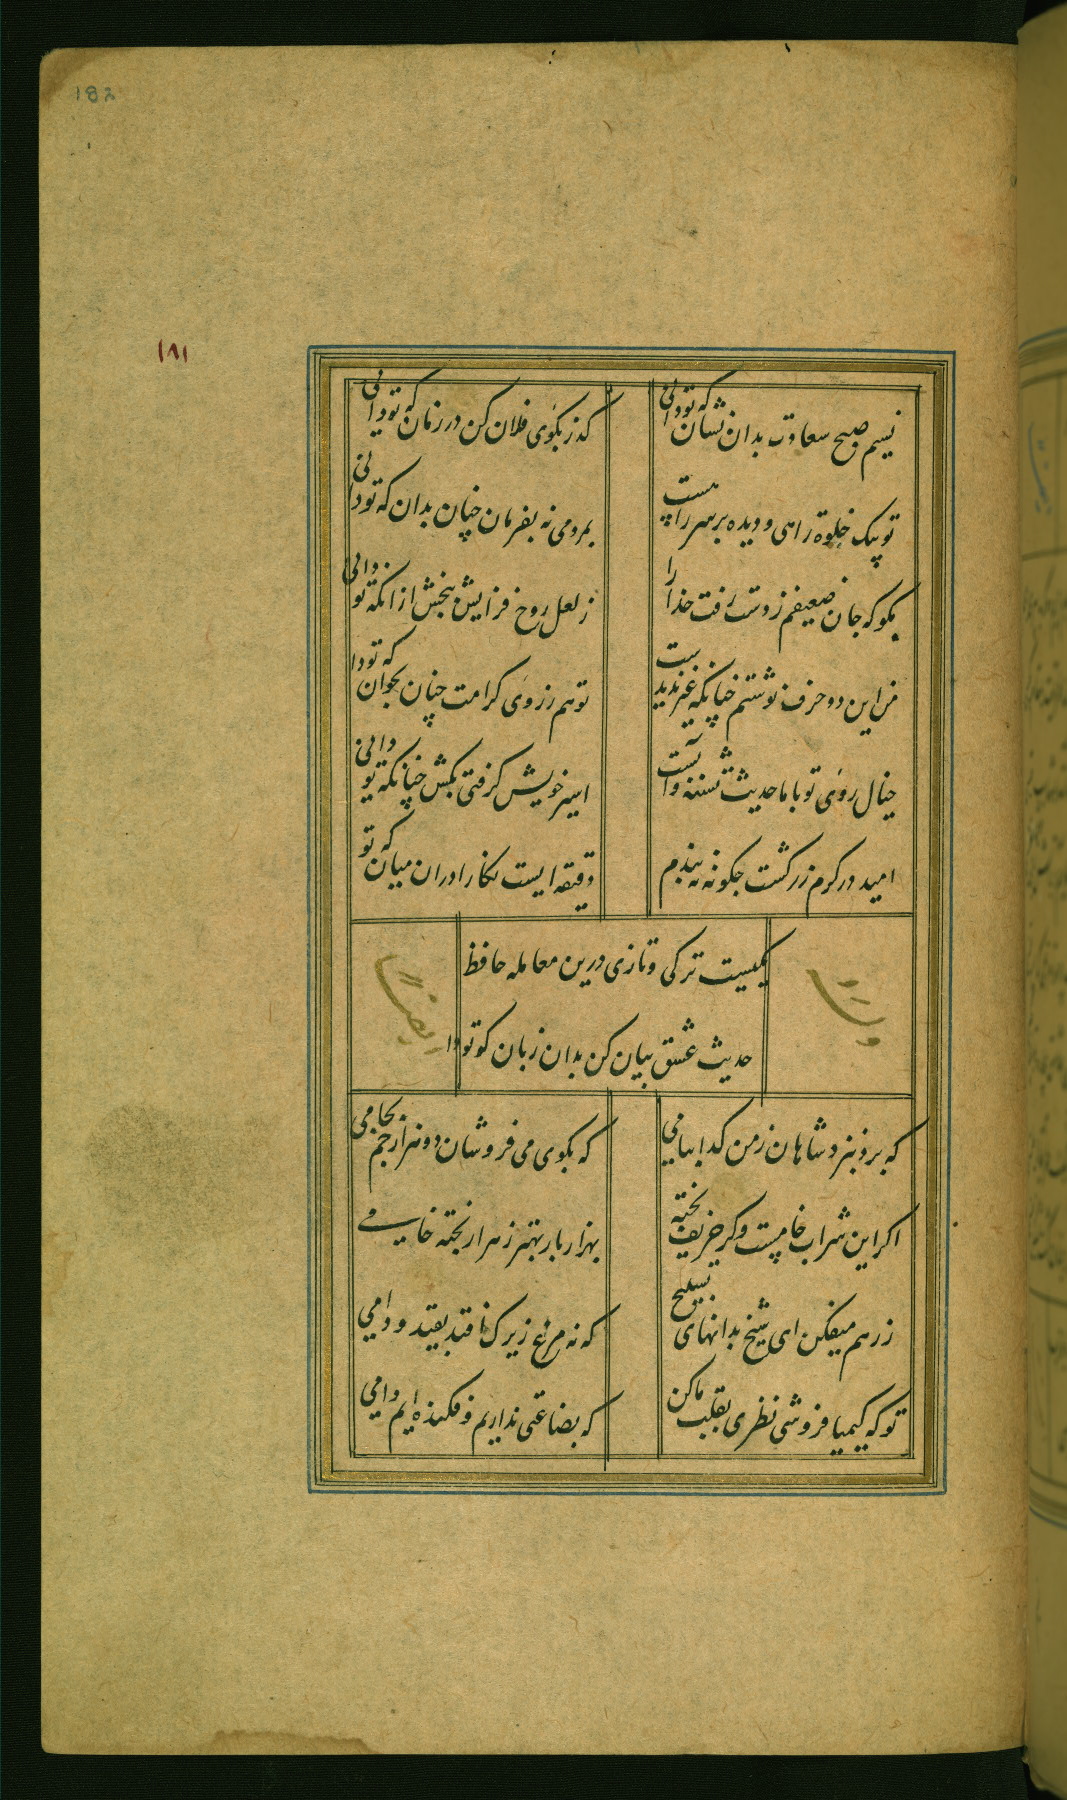 182
١٨١
نسیم صبح سعادت بدان نشان که تو دانی
گذر بکوی فلان کن در زمان که تو دانی
تو پیک خلوة راهی و دیده بر سر راهست
بمردمی نه بفرمان چنان بدان که تو دانی
بگو که جان ضعیفم ز دست رفت خدا را
ز لعل روح فزایش ببخش از آنکه تو دانی
من این دو حرف نوشتم چنانکه غیر ندید
تو هم ز روی کرامت چنان بخوان که تو دا
خیال روی تو با ما حدیث تشنه و آبست
اسیر خویش گرفتی بکش چنانکه تو دانی
امید در کرم زرکشت چگونه نه بندم
دقیقه ایست نگارا در آن میان که تو
یکیست ترکی و تازی درین معامله حافظ
حدیث عشق بیان کن بدان زبان کو تو دا
وله
ایضاً
که برد بنزد شاهان ز من گدا پیامی
که بکوی می فروشان دو هزار جم بجامی
اگر این شراب خامست وگر حریف پخته
بهزار بار بهتر ز هزار پخته خامی
ز رهم میفکن ای شیخ بدانهای تسبیح
که نه مرغ زیرک افتد بقید و دامی
تو که کیمیا فروشی نظری بقلب ما کن
که بضاعتی نداریم و فکنده ایم دامی